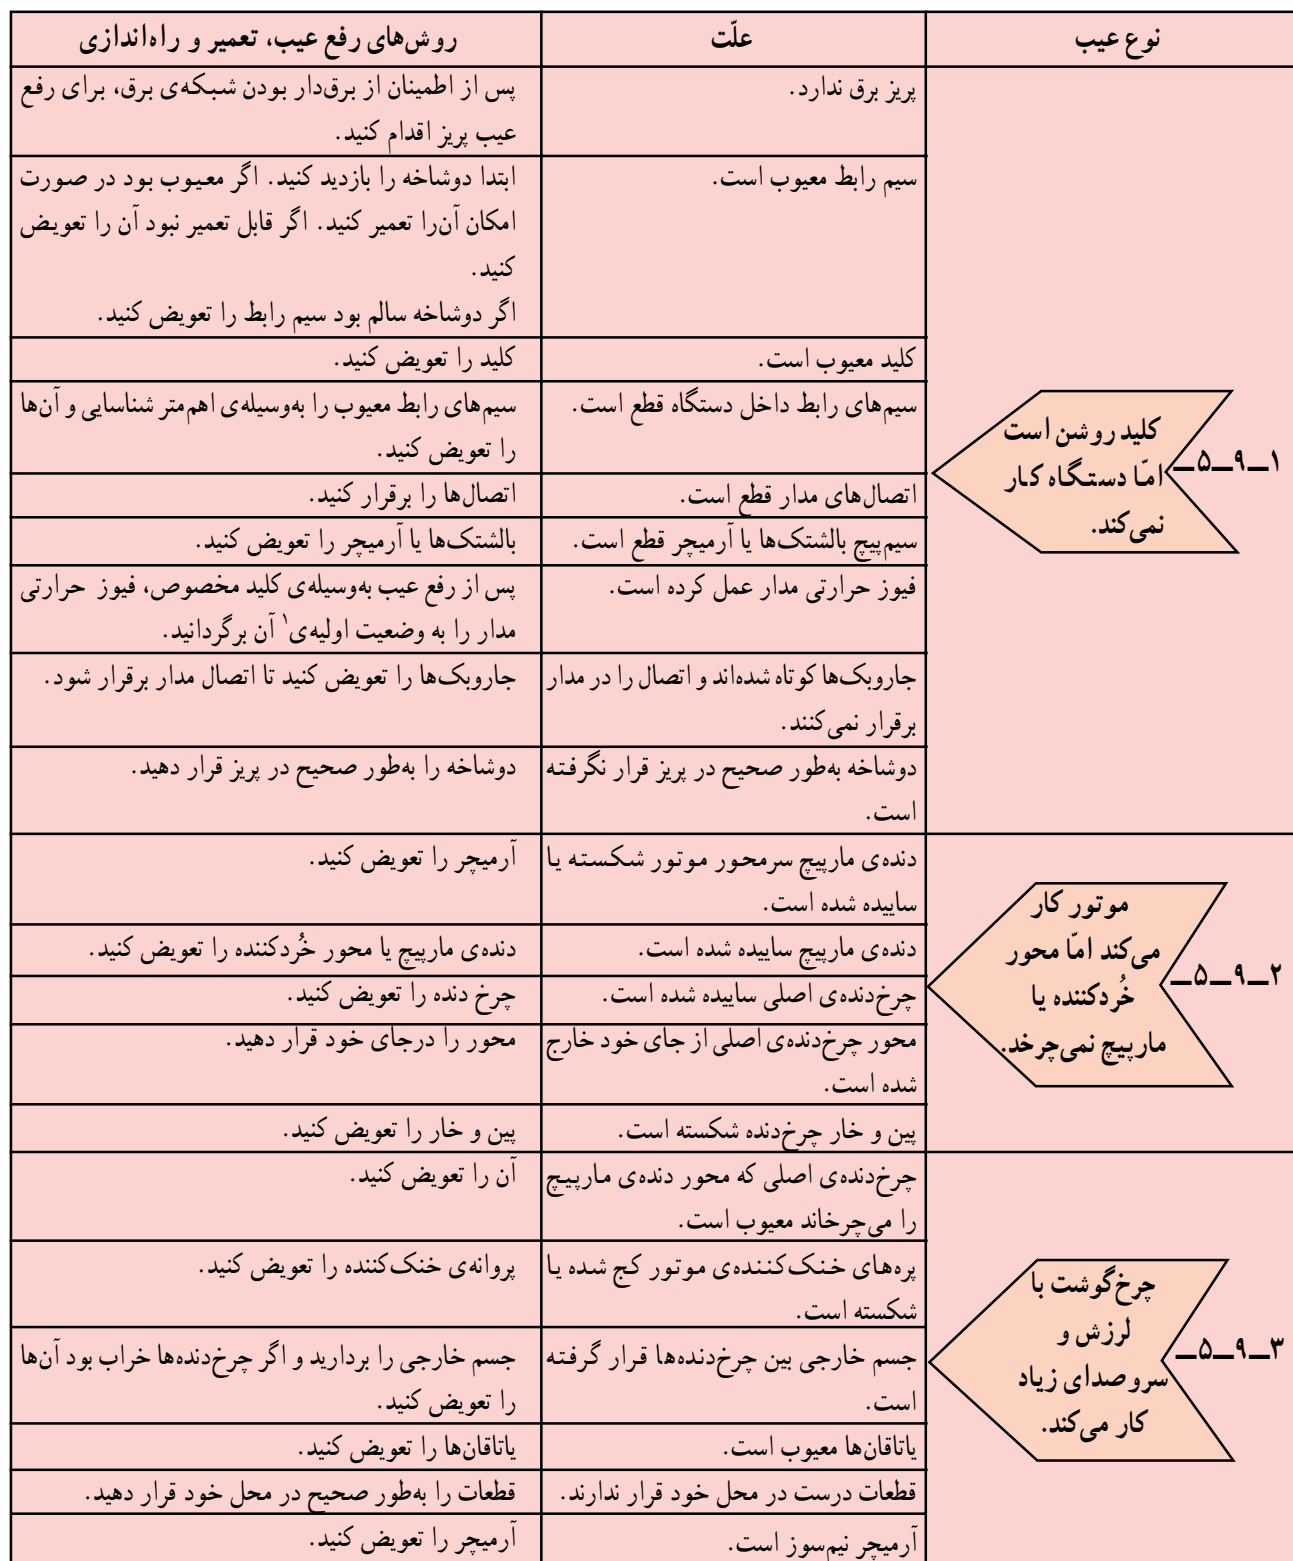 نوع عیب
علّت
روش‌های رفع عیب، تعمیر و راه‌اندازی
۱ــ۹ــ۵ــ
کلید روشن است
امّا دستگاه کار
نمی‌کند.
پریز برق ندارد.
پس از اطمینان از برق‌دار بودن شبکه‌ی برق، برای رفع
عیب پریز اقدام کنید.
سیم رابط معیوب است.
ابتدا دوشاخه را بازدید کنید. اگر معیوب بود در صورت
امکان آن‌را تعمیر کنید. اگر قابل تعمیر نبود آن را تعویض
کنید.
اگر دوشاخه سالم بود سیم رابط را تعویض کنید.
کلید معیوب است.
کلید را تعویض کنید.
سیم‌های رابط داخل دستگاه قطع است.
سیم‌های رابط معیوب را به‌وسیله‌ی اهم‌متر شناسایی و آن‌ها
را تعویض کنید.
اتصال‌های مدار قطع است.
اتصال‌ها را برقرار کنید.
سیم‌پیچ بالشتک‌ها یا آرمیچر قطع است.
بالشتک‌ها یا آرمیچر را تعویض کنید.
فیوز حرارتی مدار عمل کرده است.
پس از رفع عیب به‌وسیله‌ی کلید مخصوص، فیوز حرارتی
مدار را به وضعیت اولیه‌ی۱ آن برگردانید.
جاروبک‌ها کوتاه شده‌اند و اتصال را در مدار
برقرار نمی‌کنند.
جاروبک‌ها را تعویض کنید تا اتصال مدار برقرار شود.
دوشاخه به‌طور صحیح در پریز قرار نگرفته
است.
دوشاخه را به‌طور صحیح در پریز قرار دهید.
۲ــ۹ــ۵ــ
موتور کار
می‌کند امّا محور
خُردکننده یا
مارپیچ نمی‌چرخد.
دنده‌ی مارپیچ سرمحور موتور شکسته یا
ساییده شده است.
آرمیچر را تعویض کنید.
دنده‌ی مارپیچ ساییده شده است.
دنده‌ی مارپیچ یا محور خُردکننده را تعویض کنید.
چرخ‌دنده‌ی اصلی ساییده شده است.
چرخ دنده را تعویض کنید.
محور چرخ‌دنده‌ی اصلی از جای خود خارج
شده است.
محور را درجای خود قرار دهید.
پین و خار چرخ‌دنده شکسته است.
پین و خار را تعویض کنید.
۳ــ۹ــ۵ــ
چرخ‌گوشت با
لرزش و
سروصدای زیاد
کار می‌کند.
چرخ‌دنده‌ی اصلی که محور دنده‌ی مارپیچ
را می‌چرخاند معیوب است.
آن را تعویض کنید.
پره‌های خنک‌کننده‌ی موتور کج شده یا
شکسته است.
پروانه‌ی خنک‌کننده را تعویض کنید.
جسم خارجی بین چرخ‌دنده‌ها قرار گرفته
است.
جسم خارجی را بردارید و اگر چرخ‌دنده‌ها خراب بود آن‌ها
را تعویض کنید.
یاتاقان‌ها معیوب است.
یاتاقان‌ها را تعویض کنید.
قطعات درست در محل خود قرار ندارند.
قطعات را به‌طور صحیح در محل خود قرار دهید.
آرمیچر نیم‌سوز است.
آرمیچر را تعویض کنید.